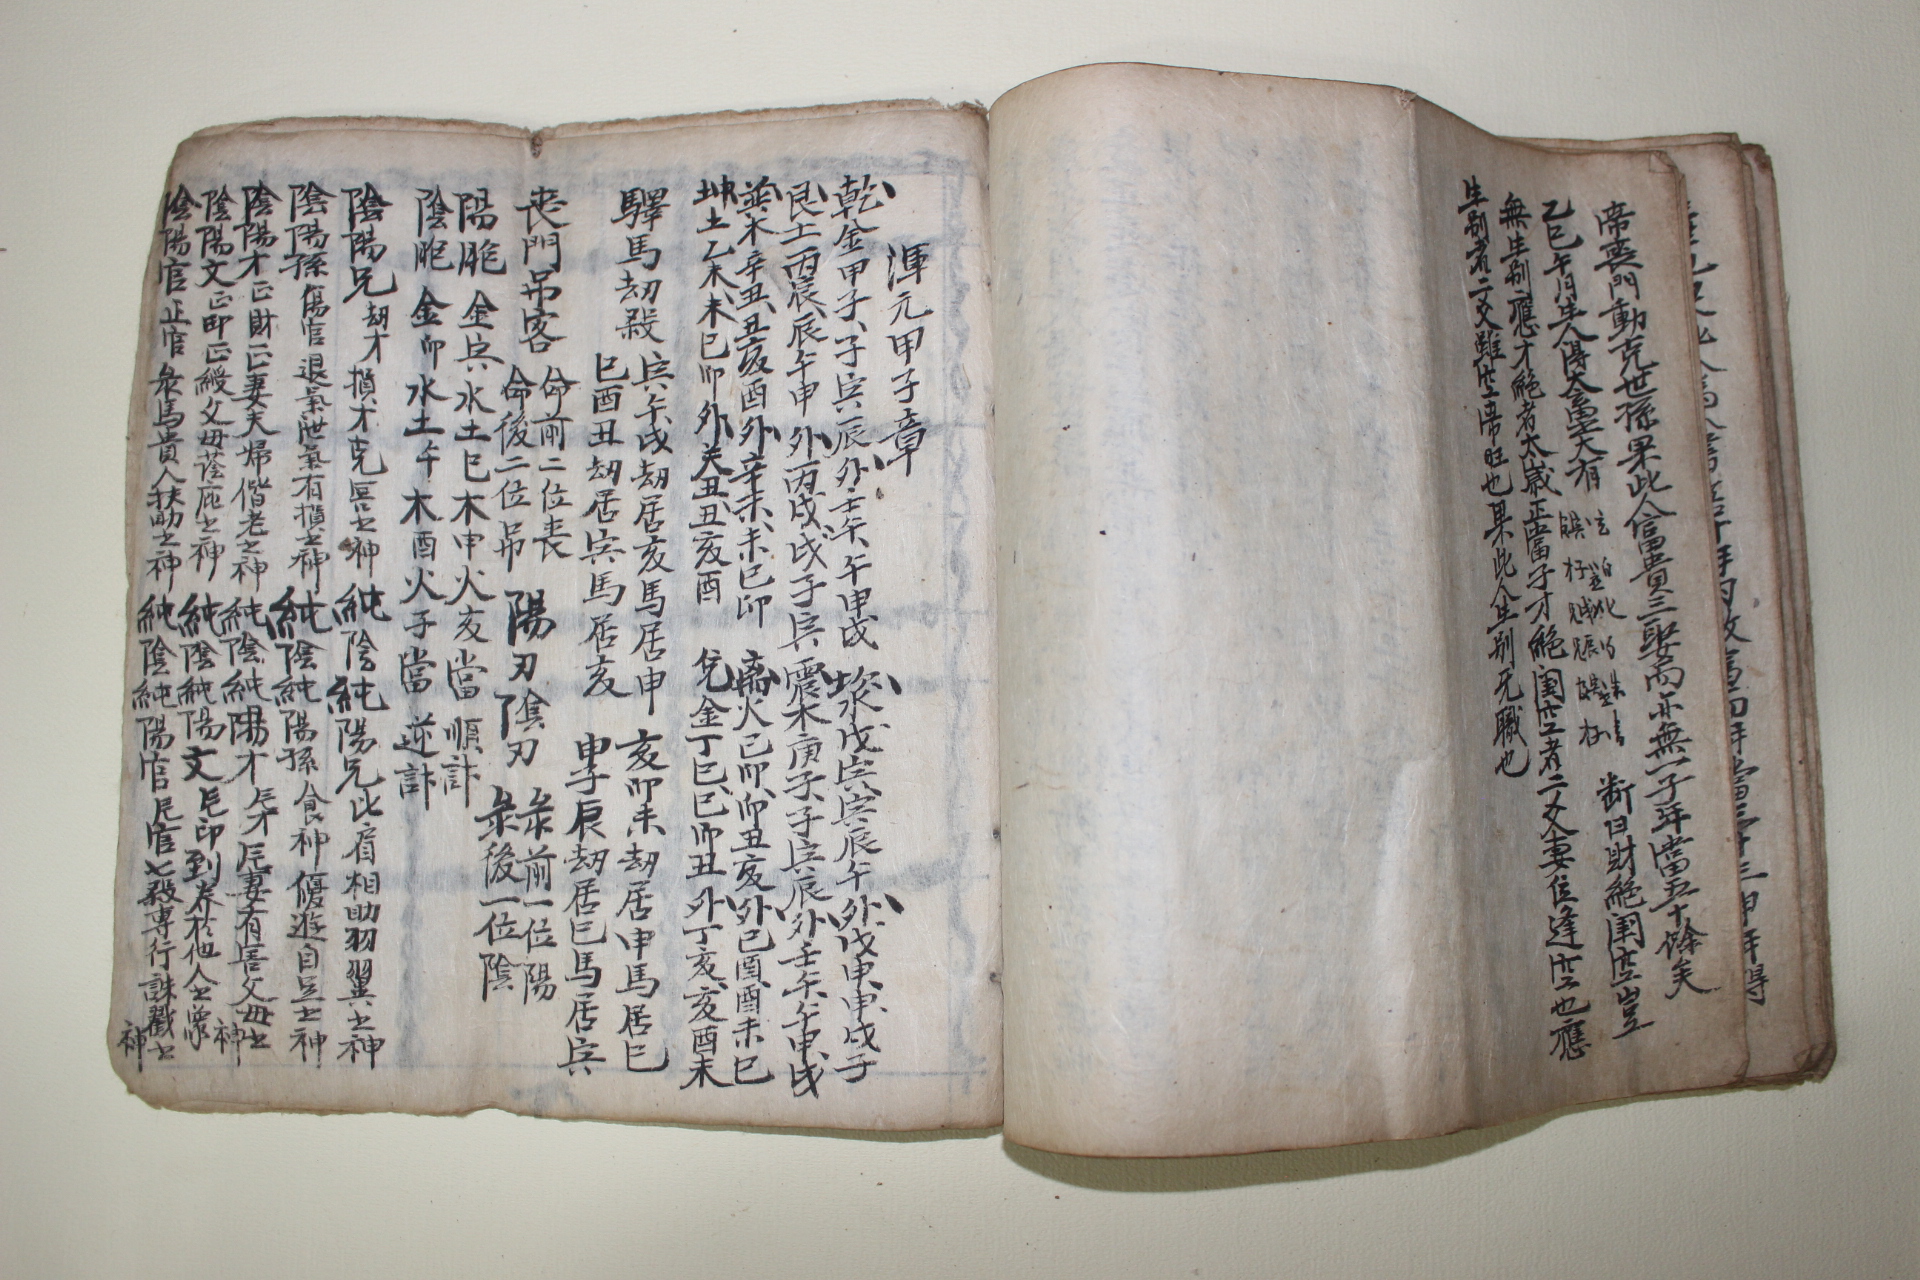 席喪門動克世孫果此人富貴三娶而亦無一子年當五十餘矣
乙巳午月生人得大畜大有
断曰財絶闺空豈
無生别應才絶者太歲正當子才絶闺空者二爻妻位逢空也應
生别者二爻雖空席旺也果此人生别无職也
渾元甲子章
乾金甲子、子寅辰外壬午、午申戌 坎水戊寅、寅辰午外戊申、申戌子
艮土丙辰、辰午申外丙戌、戌子寅 震木庚子、子寅辰外壬午、午申戌
巽木辛丑、丑亥酉外辛未、未巳卯 离火己卯、卯丑亥外己酉、酉未巳
坤土乙未、未巳卯外癸丑、丑亥酉 兌金丁巳、巳卯丑外丁亥、亥酉未
驛馬劫殺 寅午戌劫居亥馬居申 亥卯未劫居申馬居巳
巳酉丑劫居寅馬居亥 申子辰劫居巳馬居寅
喪門吊客 命前二位喪 陽刃陰刃 彔前一位陽
命後二位吊 彔後一位陰
陽胞 金寅水土巳木申火亥當順計
陰胞 金卯水土午木酉火子當逆計
陰陽兄 劫才損才克冥之神 純陰純陽兄比肩相助羽翼之神
陰陽孫 傷官退氣泄氣有損之神 純陰純陽孫食神優遊自足之神
陰陽才正財正妻夫婦偕老之神 純陰純陽才
陰陽文正印正綬父母蔭庇之神 純陰純陽文
陰陽官正官彔馬貴人扶助之神 純陰純陽官 七殺専行誅戮之神